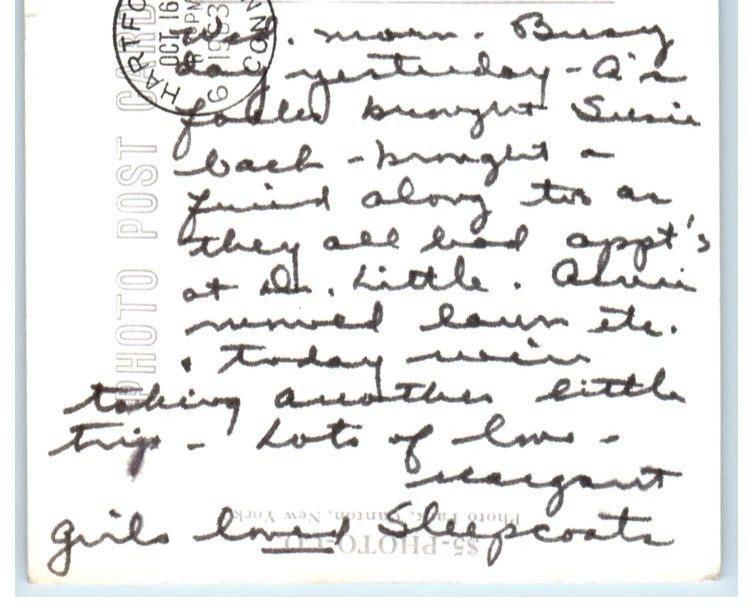 HARTFO CONN
OCT 16
PM
1953
9
PHOTO POST CARD
Wed. morn. Busy
day yesterday - A's
folks brought Susie
back - brought a
friend along too as
they all had appt's
at Dr. Little. Alvin
mowed lawn etc.
. today we're
taking another little
trip - Lots of love -
Margaret
girls loved Sleepcoats
Photo Park, Canton, New York
$5-PHOTO-CO